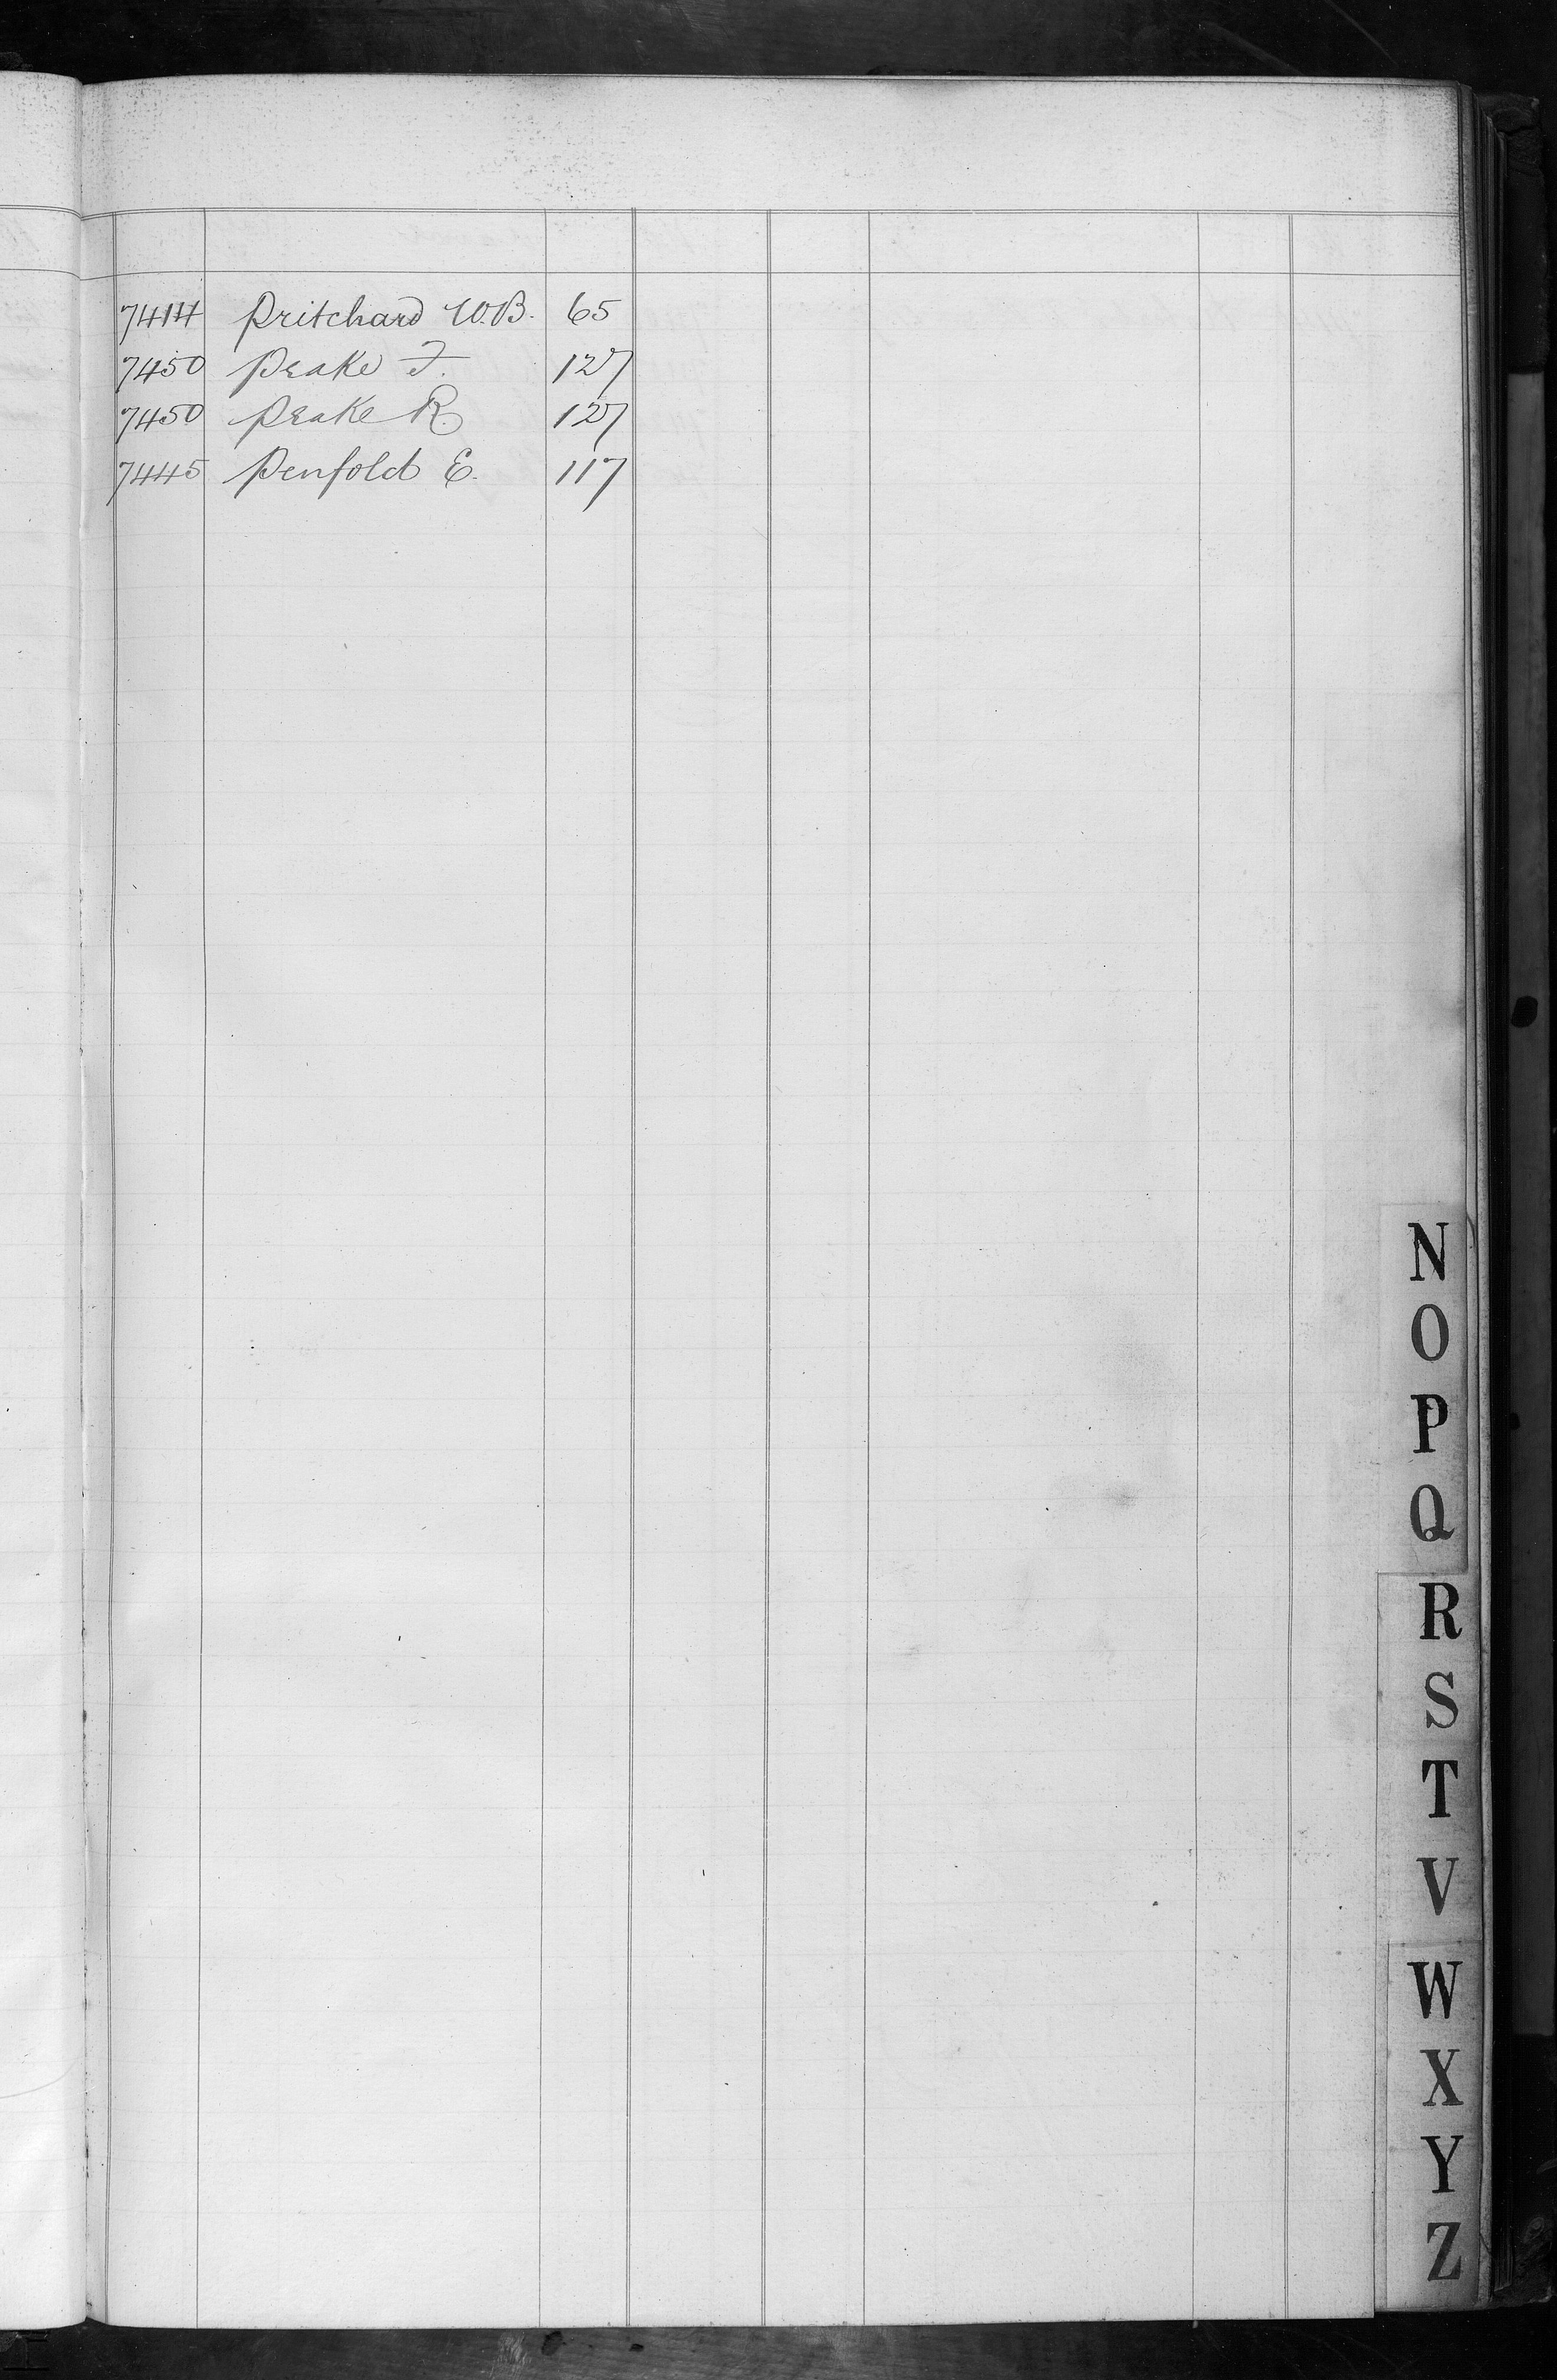 7414 Pritchard W.B. 65
7450 Peake F. 127
7450 Peake R. 127
7445 Penfold E. 117
N
O
P
Q
R
S
T
V
W
X
Y
Z